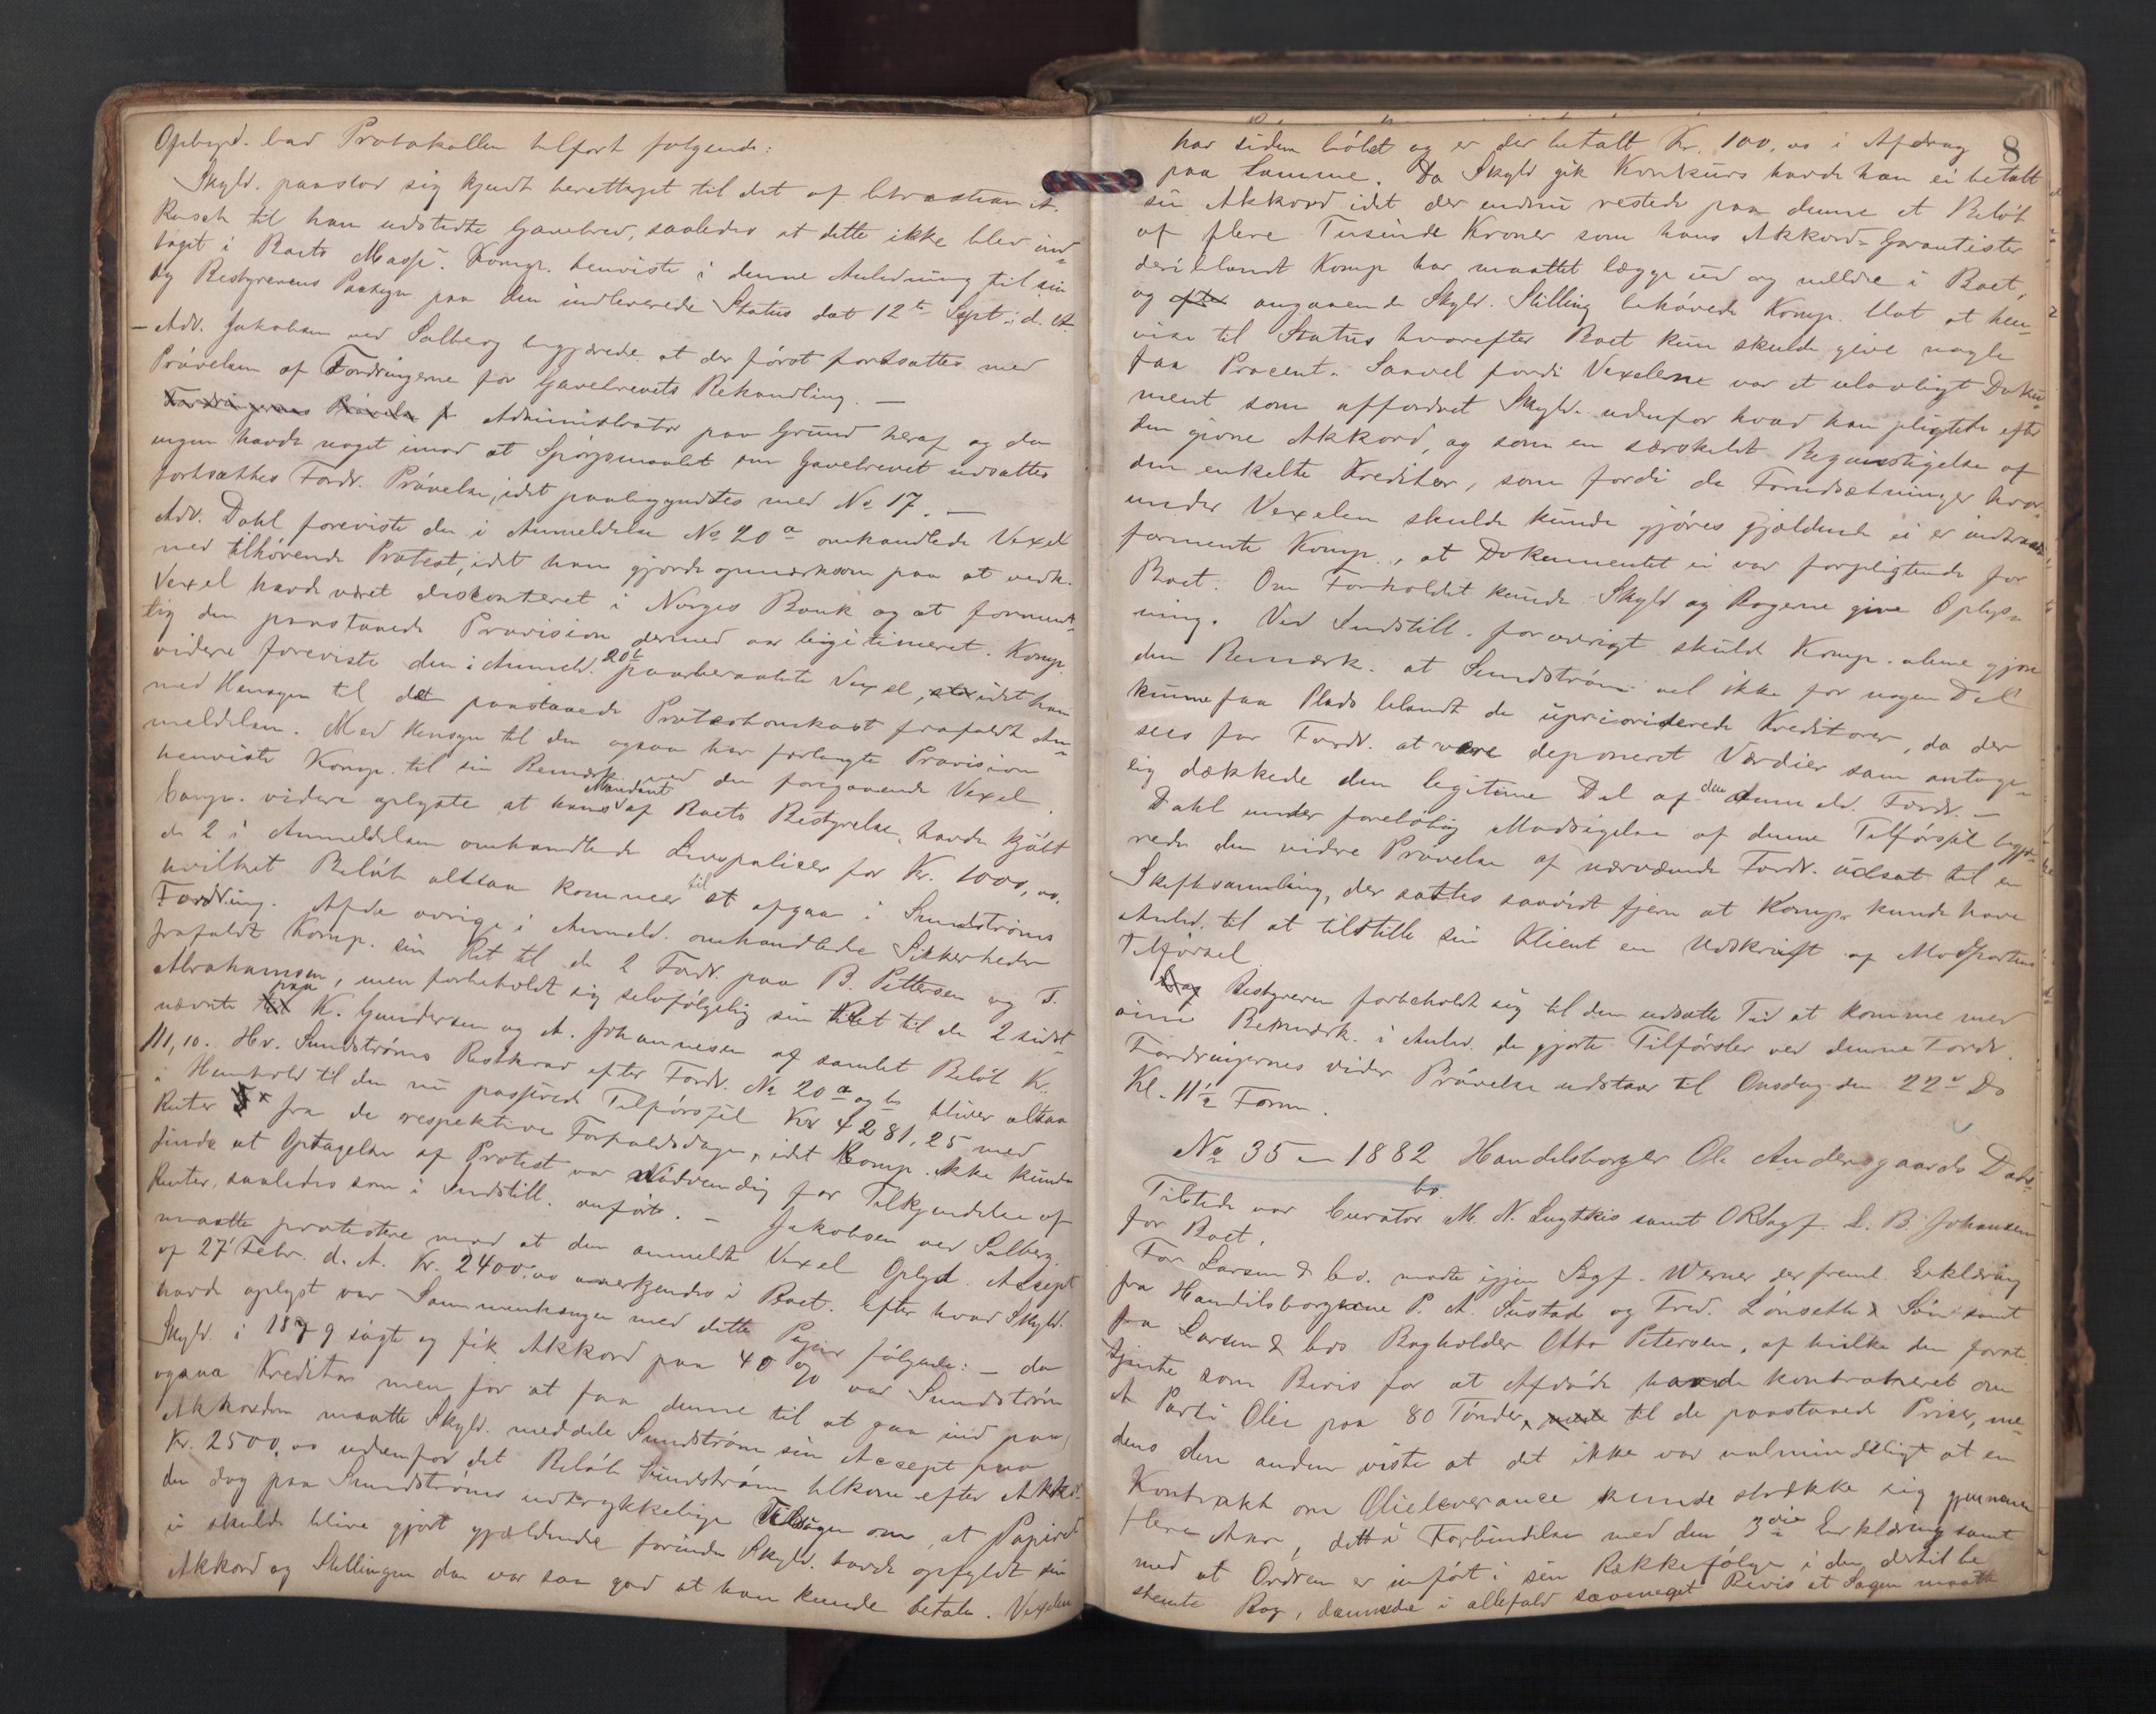 Opbyd. bad Protokollen tilført følgende:
Skyld. paastod sig kjendt berettiget til det af Christian A.
Rusch til ham udstedte Gavebrev, saaledes at dette ikke blev ind-
taget i Boets Masse. Komp. henviste i denne Anledning til sin
og Bestyrerens Paategn. paa den indleverede Status dat 12te Sept. d. A.
– Adv. Jakobsen ved Solberg begjærede at der først fortsattes med
Prøvelsen af Fordringerne før Gavebrevets Behandling. –
Fordringernes Prøvelse f Administrator paa Grund heraf og da
ingen havde noget imod at Spørgsmaalet om Gavebrevet udsattes
fortsattes Fordr. Prøvelse, idet paabegyndtes med No 17. –
Adv. Dahl foreviste den i Anmeldelse No 20 a omhandlede Vexel
med tilhørende Protest, idet han gjorde opmærksom paa at vedk.
Vexel havde været diskonteret i Norges Bank og at forment-
lig den paastaaede Provision dermed var legitimeret. Komp.
videre foreviste den i Anmeld. 20 b paaberaabte Vexel, idet han
med Hensyn til det paastaaede Protestomkost frafaldt An-
meldelsen. Med Hensyn til den ogsaa her forlangte Provision
henviste Komp. til sin Bemærk. ved den foregaaende Vexel.
Comp. videre oplyste at hans Mandant af Boets Bestyrelse havde kjøbt
de 2 i Anmeldelsen omhandlede Livspolicer for Kr. 1000,00.
hvilket Beløb altsaa kommer til at afgaa i Sundstrøms
Fordring. Af de øvrige i Anmeld. omhandlede Sikkerheder
frafaldt Komp. sin Ret til de 2 Fordr. paa B. Pettersen og T.
Abrahamsen, men forbeholdt sig selvfølgelig sin Ret til de 2 sidst-
nævnte paa K. Gundersen og A. Johannesen af samlet Beløb Kr.
111,10. Hr. Sundstrøms Restkrav efter Fordr. No 20 a og b bliver altsaa
i Henhold til den nu passerede Tilførsel Kr 4281,25 med
Renter fra de respektive Forfaldsdage, idet Komp. ikke kunde
finde at Optagelse af Protest var nødvendig for Tilkjendelse af
Renter, saaledes som i Indstill. anført. – Jakobsen ved Solberg
maatte protestere mod at den anmeldte Vexel Opbyd. Accept
af 27 Febr. d. A. Kr. 2400,00 anerkjendes i Boet. Efter hvad Skyld.
havde oplyst var Sammenhængen med dette Papir følgende: – da
Skyld. i 1879 søgte og fik Akkord paa 40 % var Sundstrøm
ogsaa Kreditor men for at faa denne til at gaa ind paa
Akkorden maatte Skyld. meddele Sundstrøm sin Accept paa
Kr. 2500,00 udenfor det Beløb Sundstrøm tilkom efter Akkor-
den dog paa Sundstrøms udtrykkelige Tilsagn om, at Papiret
ei skulde blive gjort gjældende førinden Skyld. havde opfyldt sin
Akkord og Stillingen da var saa god at han kunde betale. Vexelen
8
har siden løbet og er der betalt Kr. 100,00 i Afdrag
paa samme. Da Skyld gik Konkurs havde han ei betalt
sin Akkord idet der endnu restede paa denne et Beløb
af flere Tusinde Kroner som hans Akkord-Garantister
deriblandt Komp har maattet lægge ud og melde i Boet,
og efter angaaende Skyld. Stilling behøvede Komp. blot at hen-
vise til Status hvorefter Boet kun skulde give nogle
faa Procent. Saavel fordi Vexelerne var et ulovligt Doku-
ment som affordret Skyld. udenfor hvad han pligtede efter
den givne Akkord, og som en særskildt Begunstigelse af
den enkelte Kreditor, som fordi de Forudsætninger hvor-
under Vexelen skulde kunde gjøres gjældende ei er indtraadt
formente Komp., at Dokumentet ei var forpligtende for
Boet. Om Forholdet kunde Skyld og Bøgerne give Oplys-
ning. Ved Indstill. forøvrigt skulde Komp. alene gjøre
den Bemærk. at Sundstrøm vel ikke for nogen Del
kunne faa Plads blandt de uprioriterede Kreditorer, da der
sees for Fordr. at være deponeret Værdier som antage-
lig dækkede den legitime Del af den anmeldte Fordr. –
Dahl under foreløbig Modsigelse af denne Tilførsel begjæ-
rede den videre Prøvelse af nærværende Fordr. udsat til en
Skiftesamling, der sattes saavidt fjern at Komp. kunde have
Anled. til at tilstille sin Klient en Udskrift af Modpartens
Tilførsel.
Bestyreren forbeholdt sig til den udsatte Tid at komme med
sine Bemærk. i Anled. de gjorte Tilførsler ved denne Fordr.
Fordringernes videre Prøvelse udstaar til Onsdag den 22de Ds
Kl. 11 1/2 Form.
No 35 – 1882 Handelsborger Ole Andersgaards Dødsbo.
Tilstede var Curator M. N. Lugtkis samt ORSagf. L. B. Johansen
for Boet.
For Larsen & Co. mødte igjen Sagf. Werner der freml. Erklæring
fra Handelsborgerne P. A. Sustad og Fred. Lønseth & Søn samt
fra Larsen & Cos Bogholder Otto Petersen, af hvilke den første
tjente som Bevis for at Afdøde havde kontraheret om
et Parti Olie paa 80 Tønder, til de paastaaede Priser, me-
dens den anden viste at det ikke var ualmindeligt at en
Kontrakt om Olieleverance kunde strække sig gjennem
flere Aar, dette i Forbindelse med den 3die Erklæring samt
med at Ordren er indført i sin Rækkefølge i den dertil be-
stemte Bog, dannede i allefald saameget Bevis at Sagen maatte